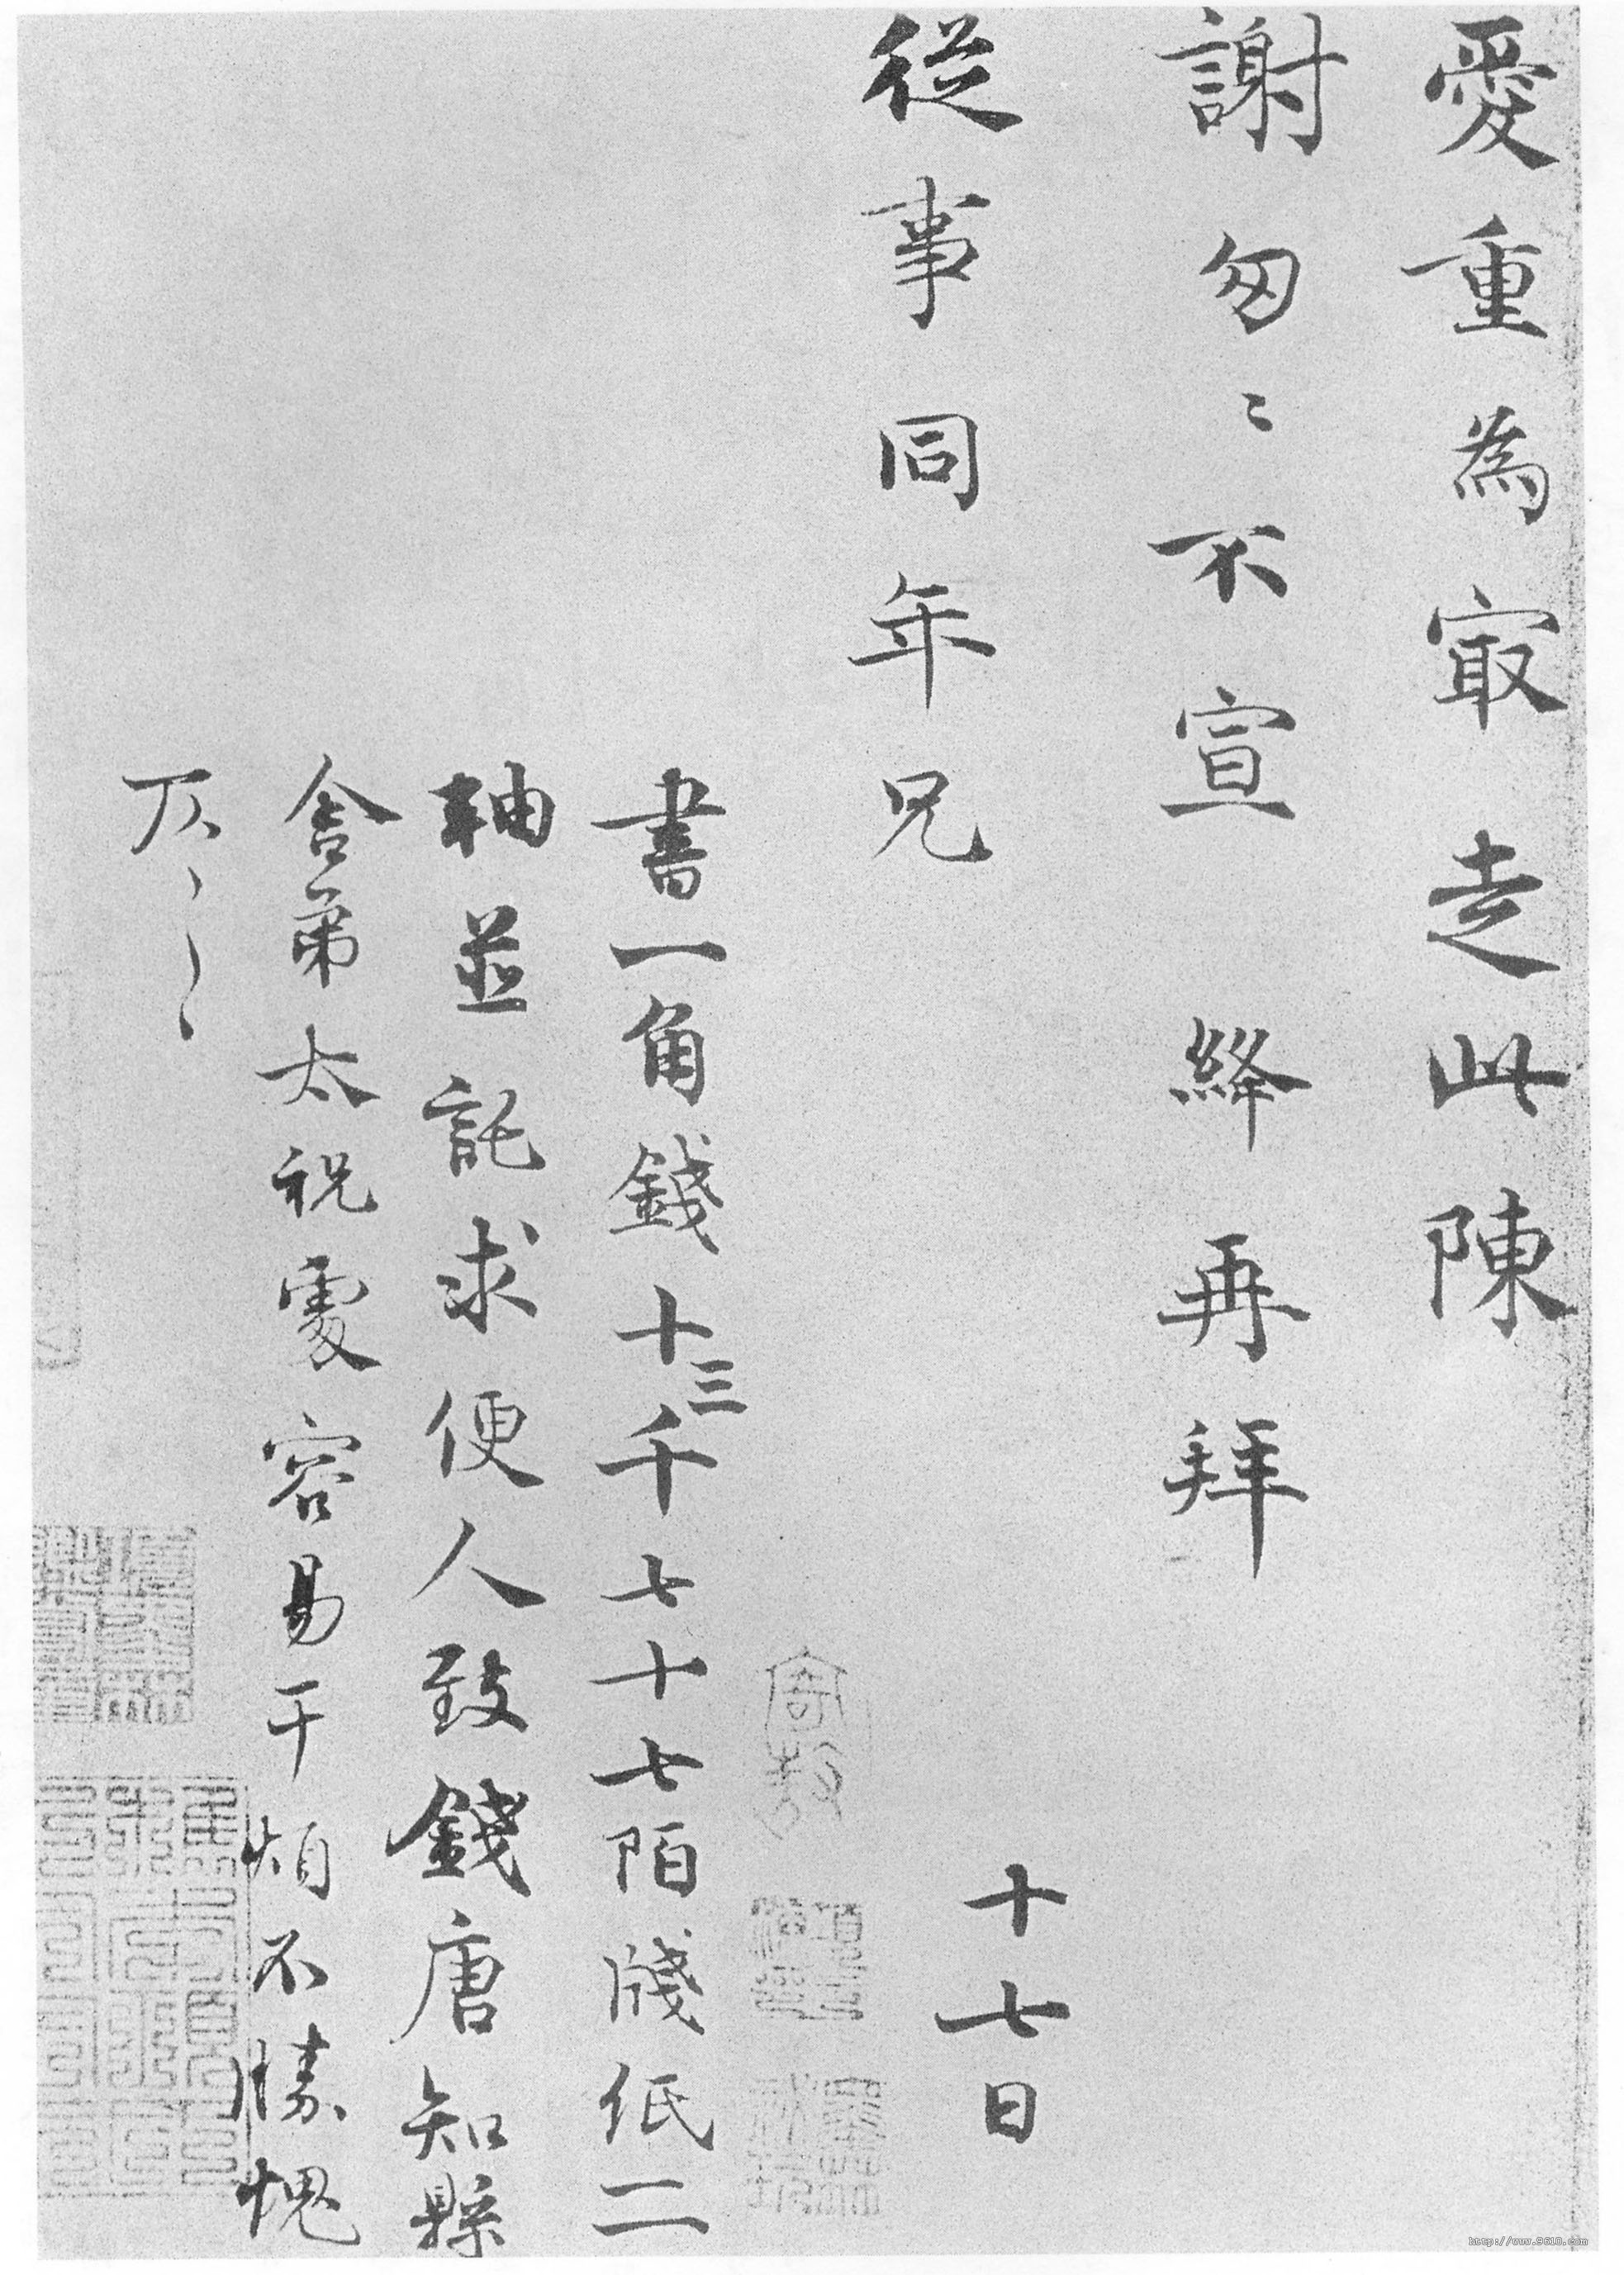 愛重為寂走此陳
謝匆〻不宣 絳再拜
十七日
從事同年兄
書一角錢十三千七十七陌牋紙二
軸並託求便人致錢唐知縣
舍弟太祝處容易干煩不勝愧
仄〻
http://www.9610.com